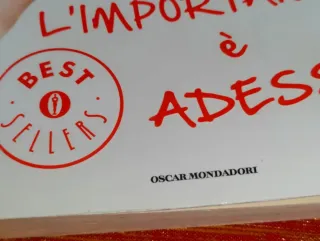 L'IMPORTAN
è
ADESS
BEST
SELLERS
OSCAR MONDADORI